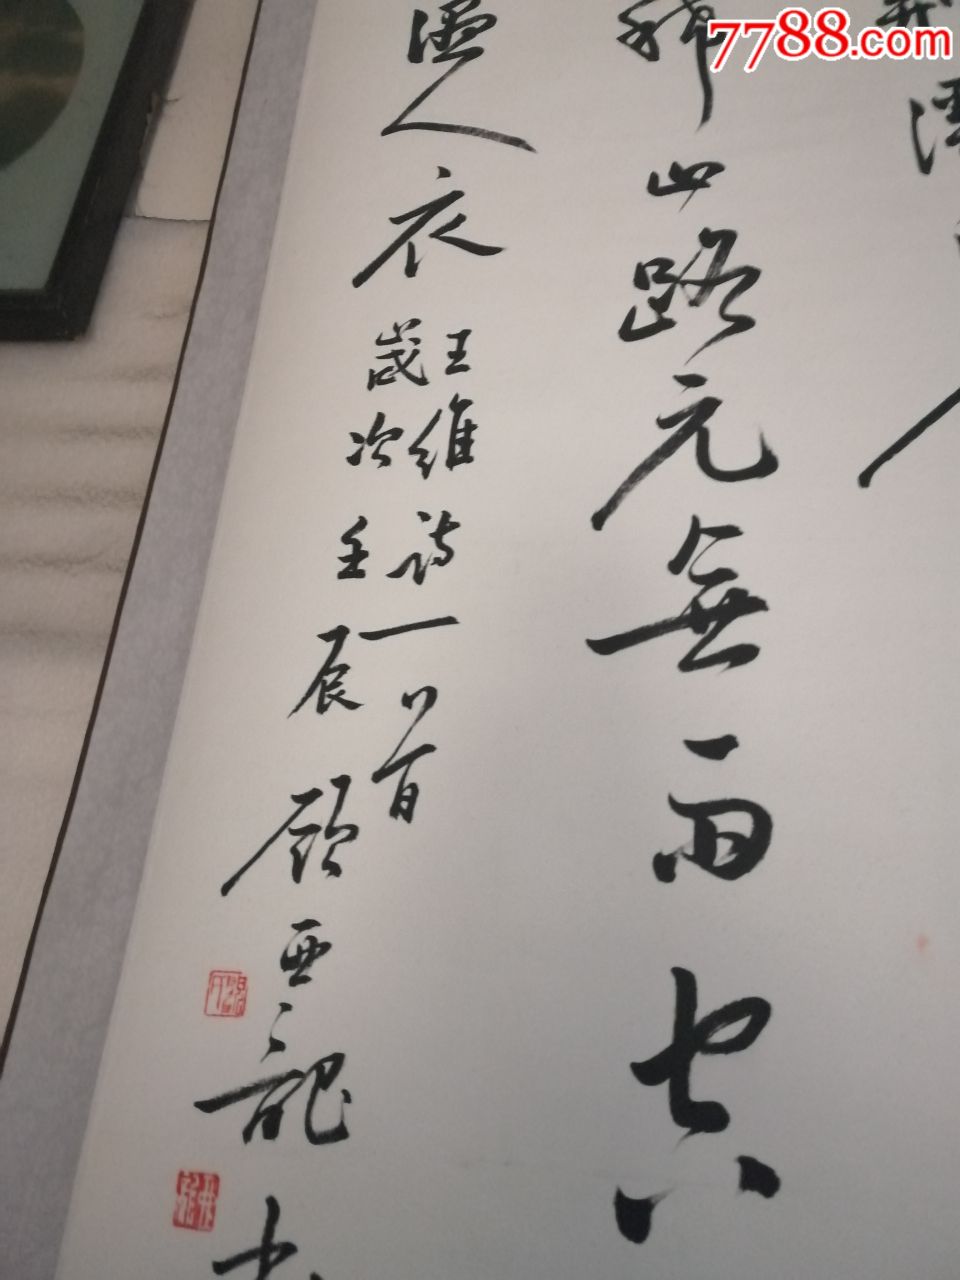 7788.com
溪
稀山路元無雨空
濕人衣
王維詩一首
歲次壬辰顧亞龍書